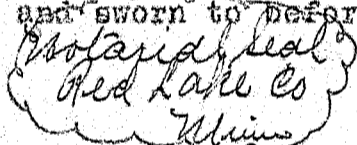 and sworn to befor
Notarial Seal
Red Lake Co
Minn